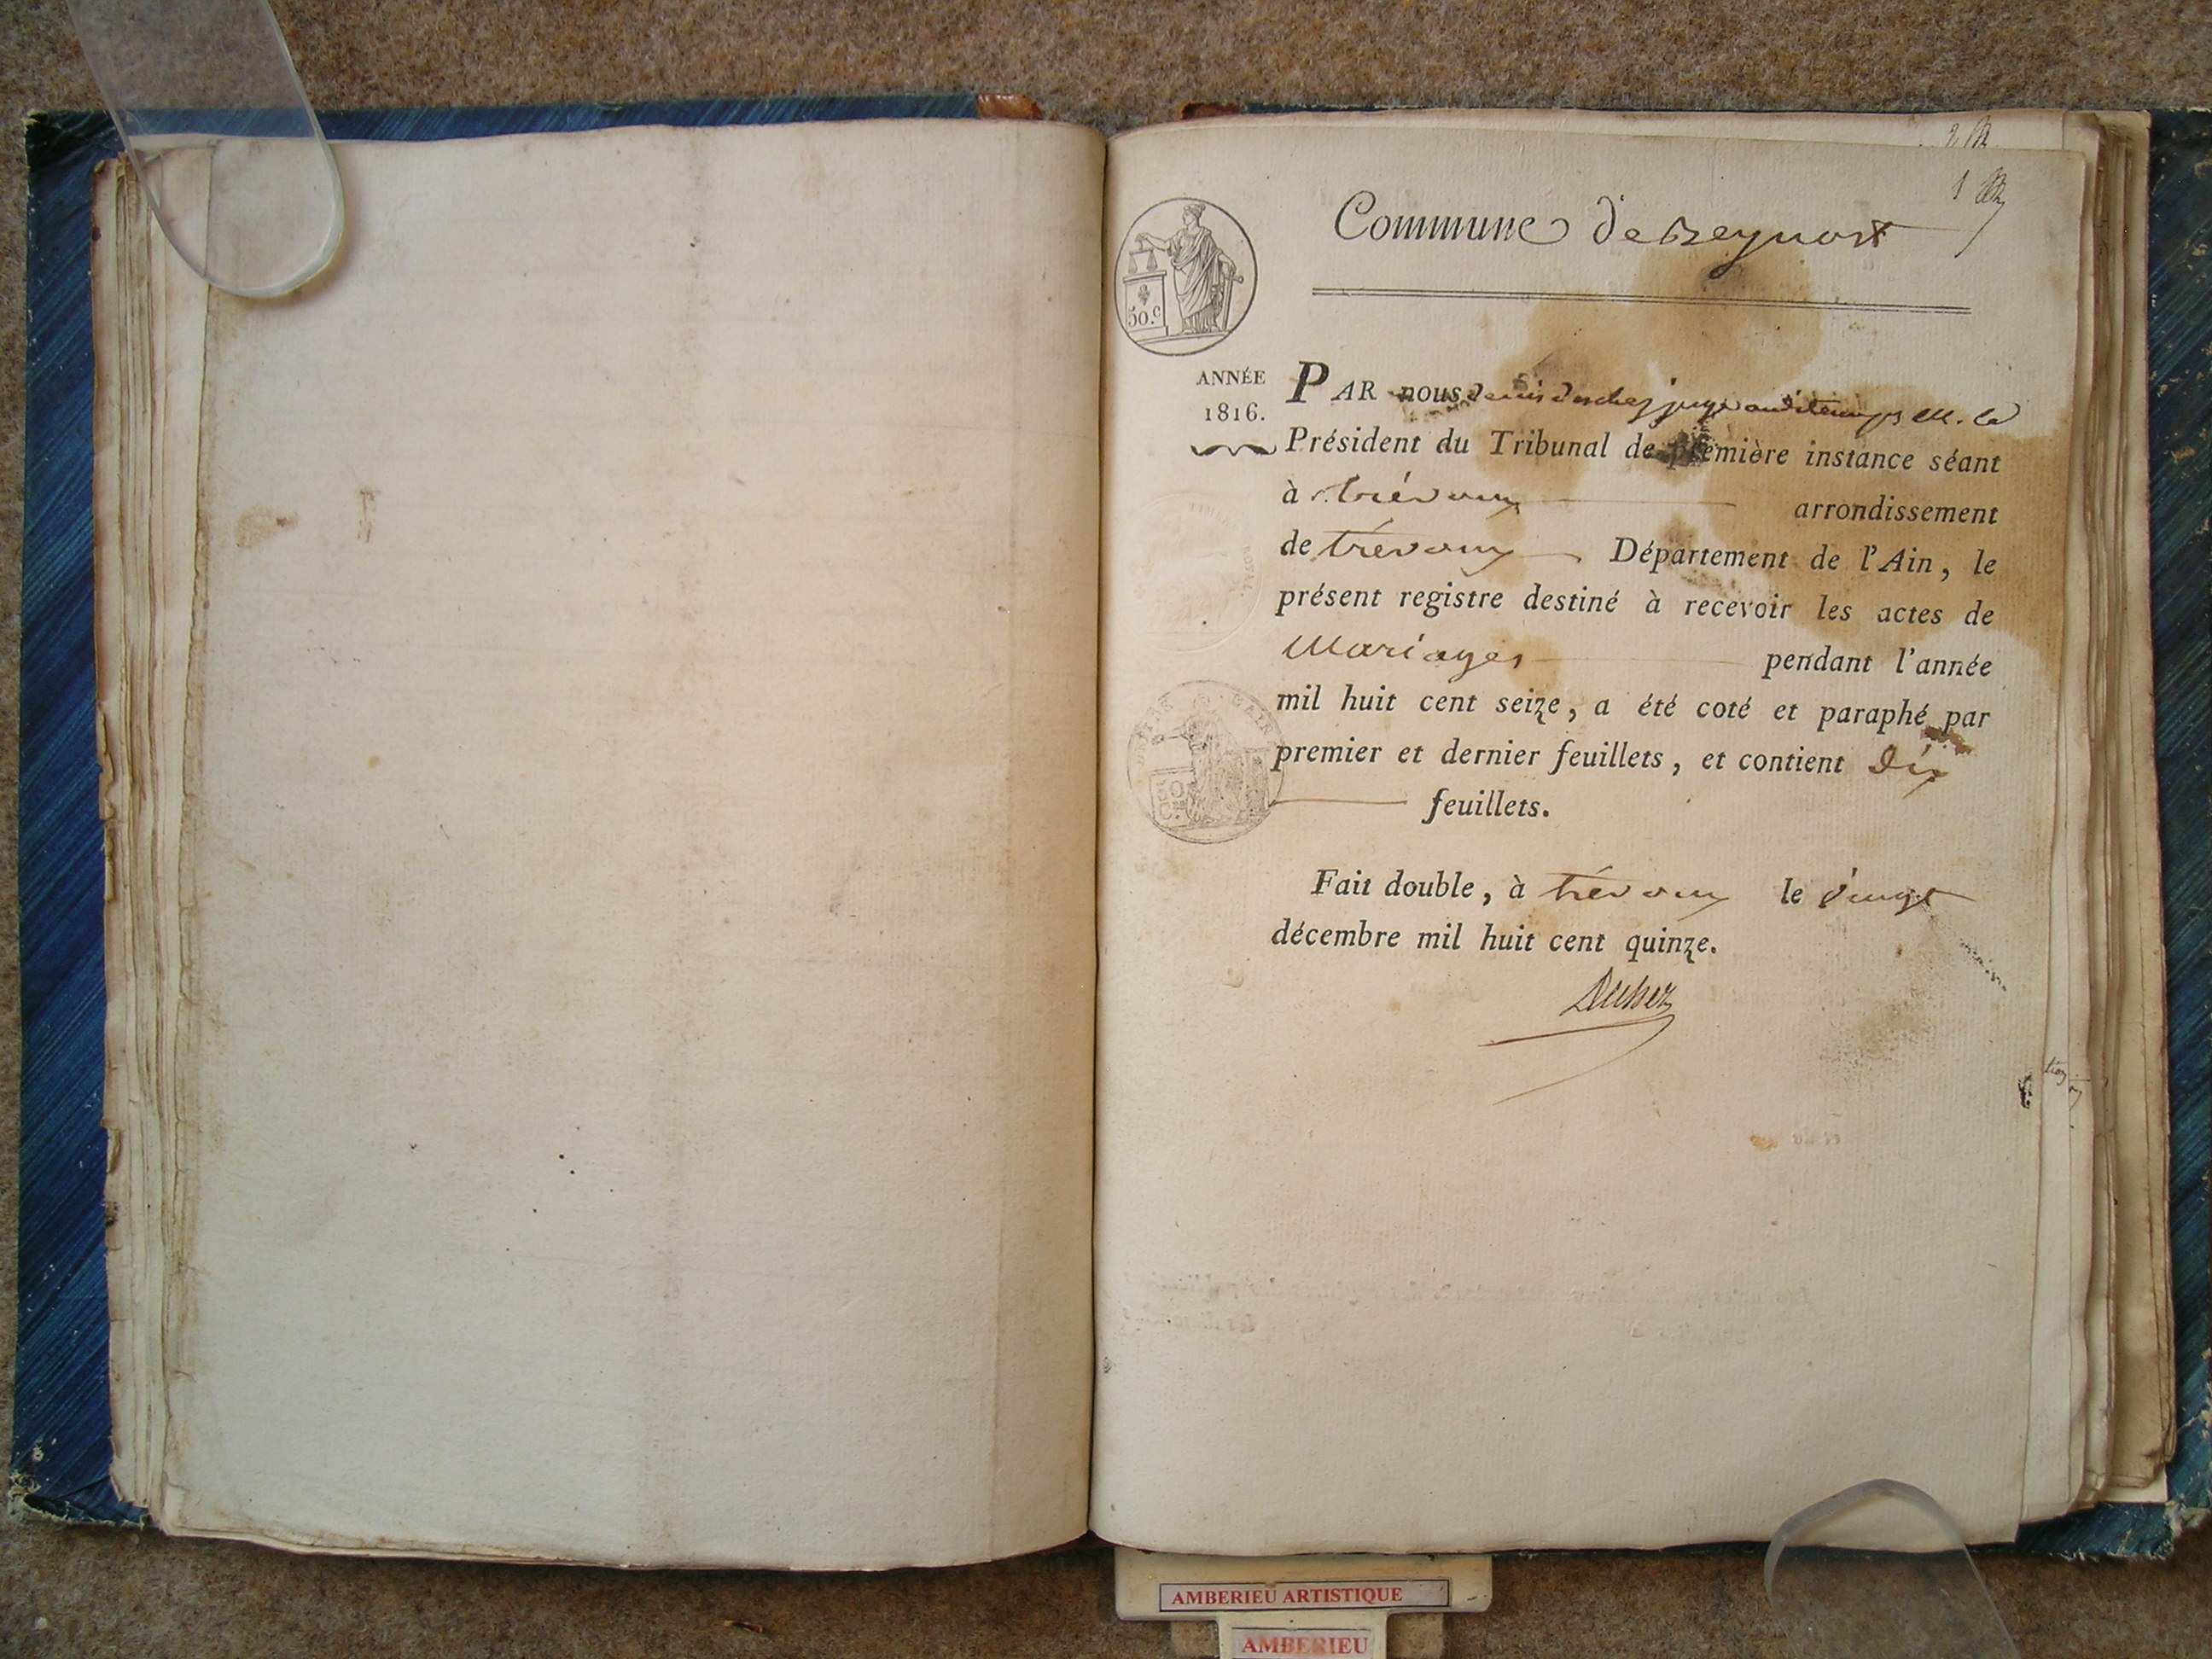 2
1
Commune de Beynost
50.c
ANNÉE
1816.
PAR nous denis duchez juge auditeur M. le
Président du Tribunal de première instance séant
à trévoux arrondissement
de trévoux Département de l'Ain, le
présent registre destiné à recevoir les actes de
Mariages pendant l'année
mil huit cent seize, a été coté et paraphé par
premier et dernier feuillets, et contient dix
feuillets.
Fait double, à trévoux le vingt
décembre mil huit cent quinze.
Duchez
AMBERIEU ARTISTIQUE
AMBERIEU